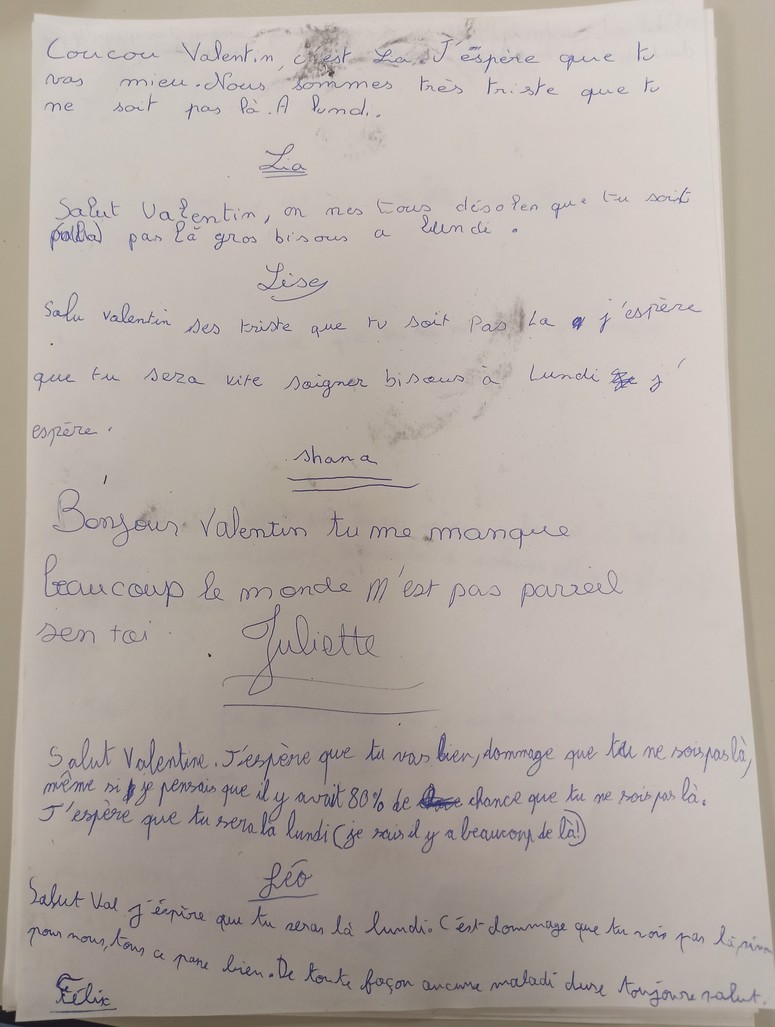 Coucou Valentin, c'est La. J'espère que tu
vas mieu. Nous sommes très triste que tu
ne soit pas là. A lundi.
Lia
Salut Valentin, on nes tous désolen que tu soit
pas là gros bisous a lundi.
Lise
Salu valentin ses triste que tu soit Pas La j'espère
que tu sera vite soigner bisous à Lundi j'
espère.
shana
Bonjour Valentin tu me manque
beaucoup le monde n'est pas pareil
sen toi.
Juliette
Salut Valentine. J'espère que tu vas bien, dommage que tu ne sois pas là,
même si je pensais que il y avait 80% de chance que tu ne sois pas là.
J'espère que tu sera là lundi (je sais il y a beaucoup de là!)
Léo
Salut Val j'éspère que tu seras là lundi. C'ést dommage que tu sois pas là,
pour nous, tous ce pase bien. De toute façon aucune maladi dure toujoure salut.
Félix